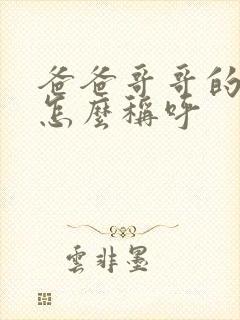 爸爸哥哥的
怎麼稱呼
雲非墨